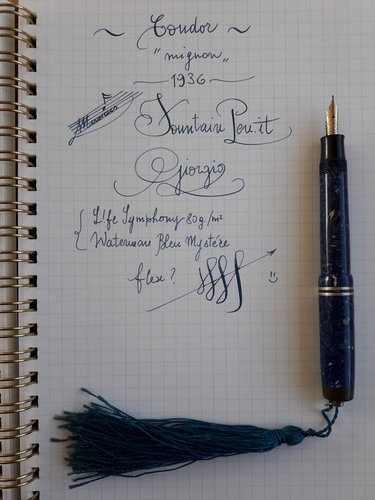 ~ Condor ~
"mignon"
1936
Fountain Pen:it
Giorgio
L!fe Symphony 80g/m²
Waterman Bleu Mystére
flex? :)